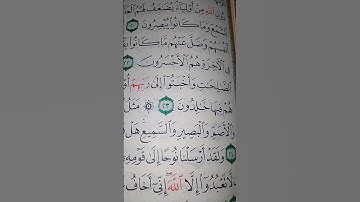 دُونِ ٱللَّهِ مِنْ أَوْلِيَآءَ يُضَٰعَفُ لَهُمُ ٱلْعَذَ
ٱلسَّمْعَ وَمَا كَانُوا۟ يُبْصِرُونَ
أَنفُسَهُمْ وَضَلَّ عَنْهُم مَّا كَانُوا۟ يَف
فِى ٱلْءَاخِرَةِ هُمُ ٱلْأَخْسَرُونَ
ٱلصَّٰلِحَٰتِ وَأَخْبَتُوٓا۟ إِلَىٰ رَبِّهِمْ أُو
هُمْ فِيهَا خَٰلِدُونَ ٢٣ ۞ مَثَلُ
وَٱلْأَصَمِّ وَٱلْبَصِيرِ وَٱلسَّمِيعِ ۚ هَلْ
وَلَقَدْ أَرْسَلْنَا نُوحًا إِلَىٰ قَوْمِهِ
لَّا تَعْبُدُوٓا۟ إِلَّا ٱللَّهَ ۖ إِنِّىٓ أَخَافُ